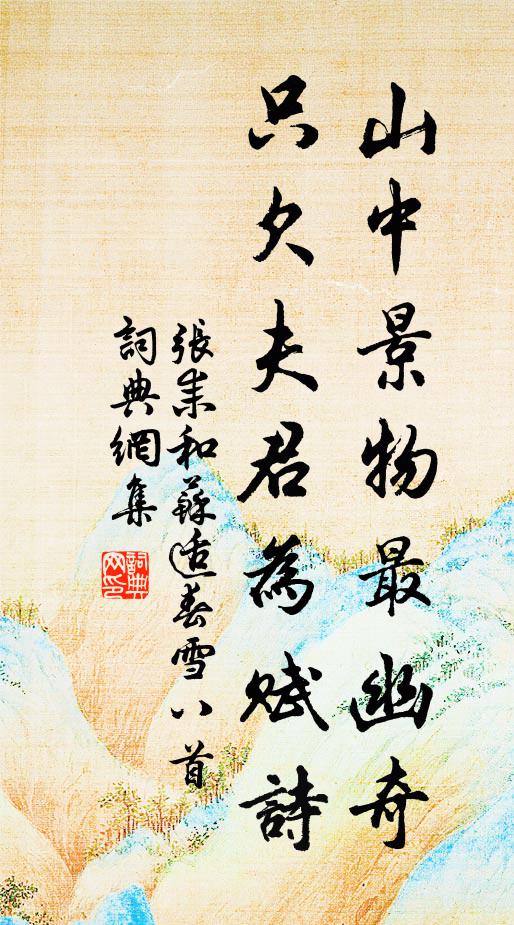 山中景物最幽奇
只欠夫君為賦詩
張耒和蘇适春雪八首
詞典網集
詞典
网印